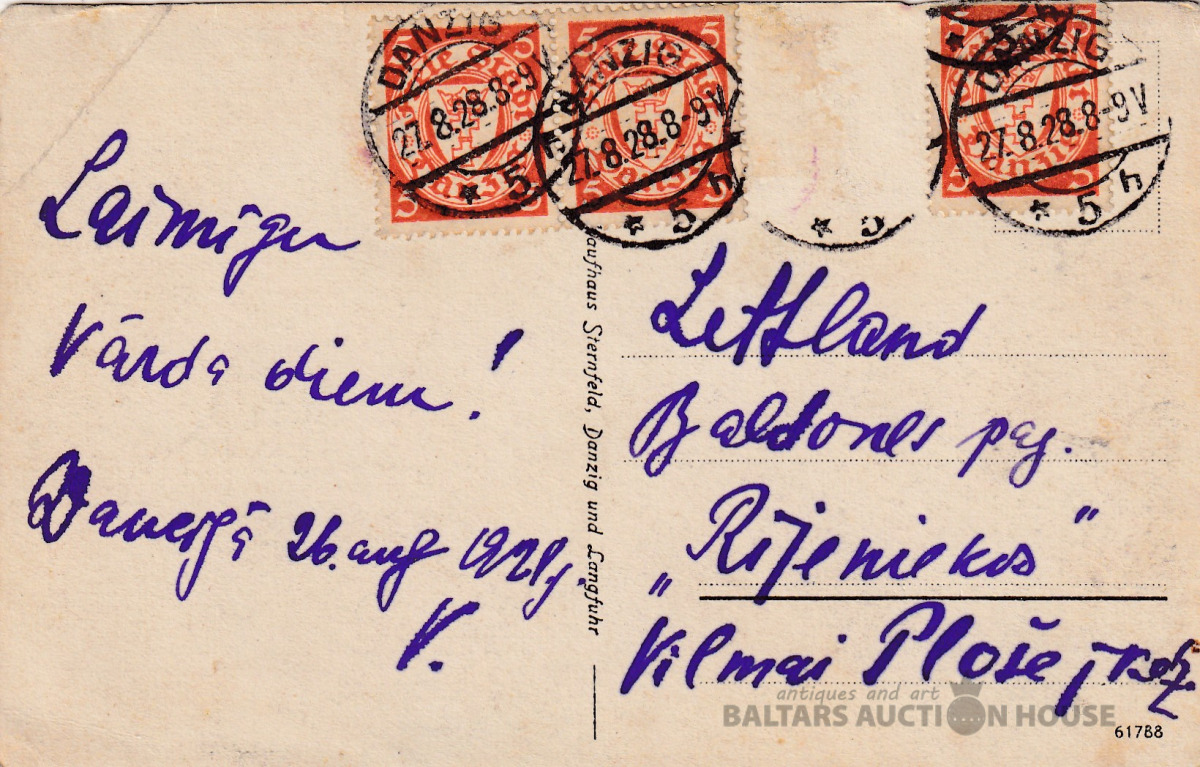 DANZIG
27.8.28.8-9V
* 5 h
DANZIG
27.8.28.8-9V
* 5 h
* 5
DANZIG
27.8.28.8-9V
* 5 h
Laimīgu
Vārda dienu!
26. aug
V.
aufhaus Sternfeld, Danzig und Langfuhr
Lettland
Baldones pag.
„Rijeniekos"
Vilmai Ploše
antiques and art
BALTARS AUCTION HOUSE
61788